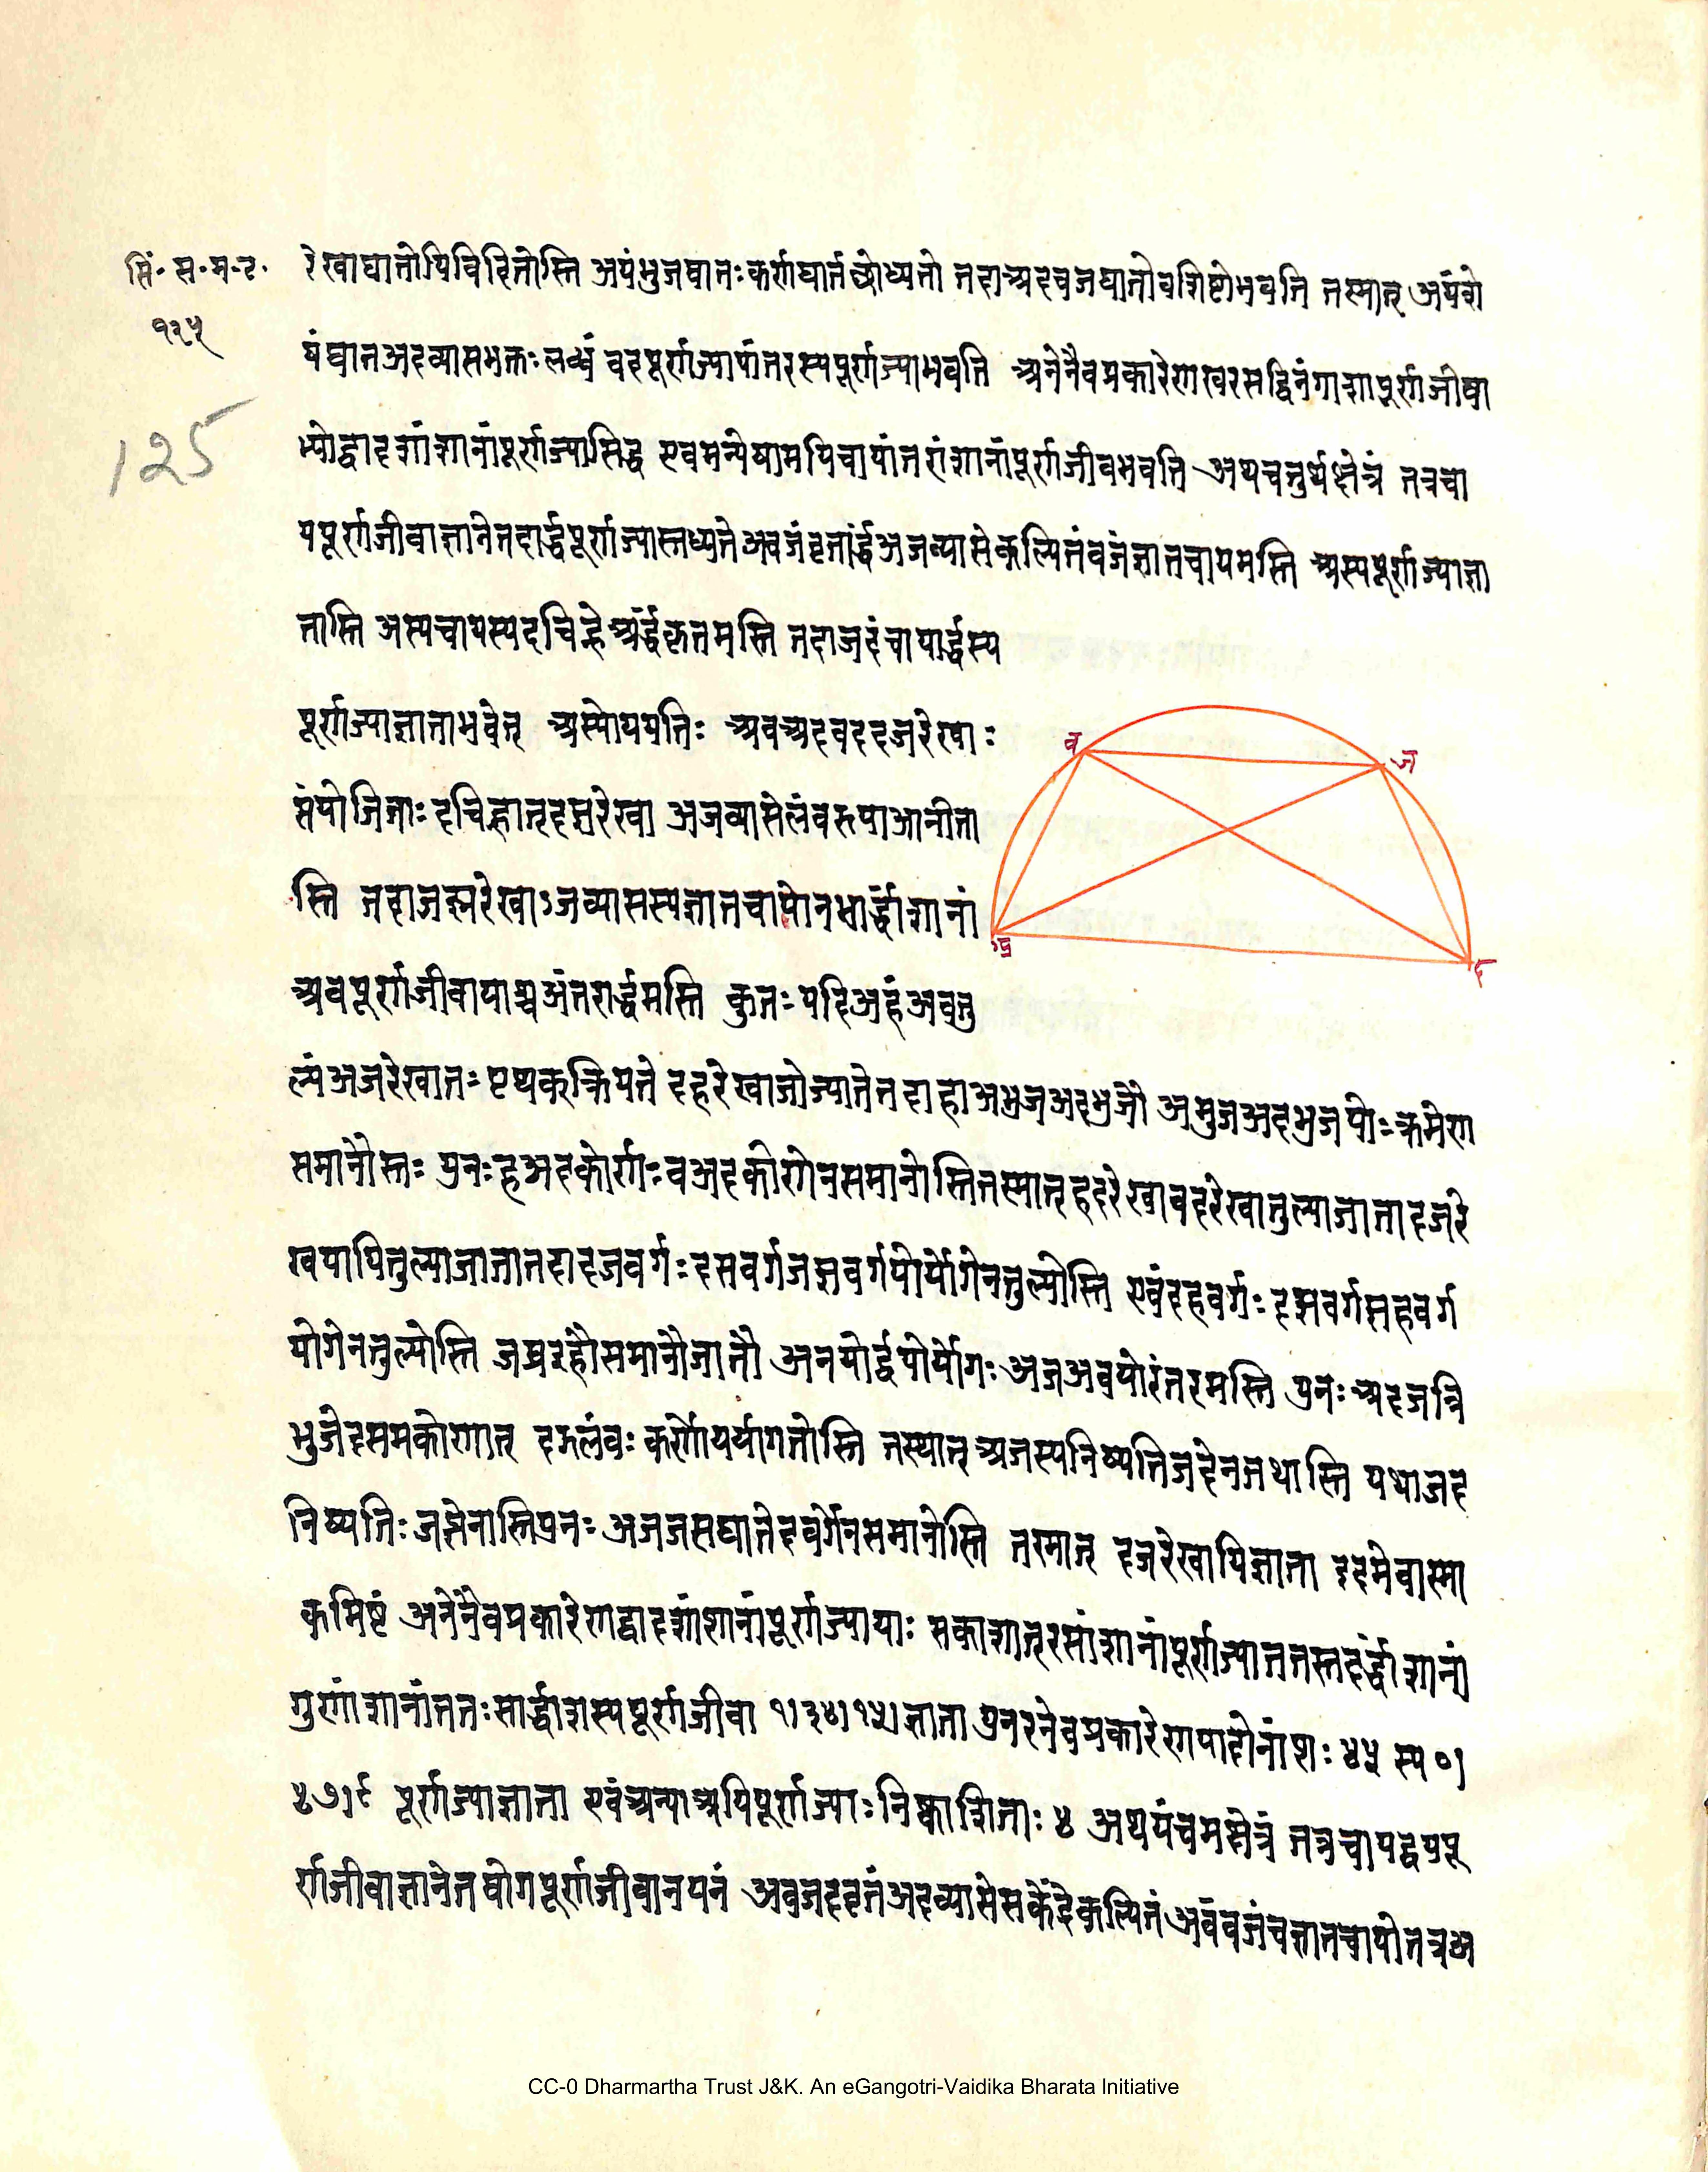 सिं॰ स॰ म॰ र॰
१२५
125
रेखाघातोपिविदितोस्ति अयंभुजघातः कर्णघातच्छोध्यतो तदाअदवजघातोवशिष्टोभवति तस्मात् अयं
यंघातअदव्यासभक्तः लब्धं वदपूर्णज्याचापांतरस्यपूर्णज्याभवति अनेनैवप्रकारेणखरसद्विनंगाशपूर्णजीवा
भ्योद्वादशांशानांपूर्णज्यासिद्ध एवमन्येषामपिचापांतरांशानांपूर्णजीवभवति अथचतुर्थक्षेत्रं तत्रचा
पपूर्णजीवाज्ञानेतदार्द्धपूर्णज्यास्तध्यते अवजंवृतार्द्धंअजव्यासेकल्पितंवजंज्ञातचापमस्ति अस्यपूर्णज्याज्ञा
तास्ति अस्यचापस्यदचिह्नेअर्द्धंकृतमस्ति तदाजदंचापार्द्धस्य
पूर्णज्याज्ञाताभवेत् अस्योपपतिः अवअदवददजरेखाः
संयोजिताः दचिह्नात्दझरेखा अजव्यासेलंबरूपाआनीता
स्ति तदाजझरेखाऽजव्यासस्यज्ञातचापोनभार्द्धांशानां
अवपूर्णजीवायाश्चअंतरार्द्धमस्ति कुतः यदिअहंअवतु
ल्यंअजरेखातः पृथक्क्रियते दहरेखाजोज्यातेतदाहाअभुजअदभुजौ अभुजअदभुजयोः क्रमेण
समानौस्तः पुनः हअदकोर्णः वअदकोणेनसमानोस्तितस्मात्हदरेखावदरेखातुल्याजातादजरे
खयापितुल्याजातातदादजवर्गः दसवर्गजझवर्गयोर्योगेनतुल्योस्ति एवंदहवर्गः दझवर्गझहवर्ग
योगेनतुल्योस्ति जझझहौसमानौजातौ अनयोर्द्वयोर्योगः अजअवयोरंतरमस्ति पुनः अदजत्रि
भुजेदसमकोणात् दझलंबः कर्णोपर्यागतोस्ति तस्मात् अजस्यनिष्पत्तिजदेनतथास्ति यथाजद
निष्पतिः जझेनास्तिपुनः अजजसघातेदवर्गेनसमानोस्ति तस्मात् दजरेखापिज्ञाता इदमेवास्मा
कमिष्टं अनेनैवप्रकारेणद्वादशांशानांपूर्णज्यायाः सकाशात्रसांशानांपूर्णज्याततस्तदर्द्धांशानां
गुणांशानांततः सार्द्धांशस्यपूर्णजीवा १।३४।१५।ज्ञाता पुनरनेवप्रकारेणपादोनांशः ४५ स्य ०।
४७।९ पूर्णज्याज्ञाता एवंअन्याअपिपूर्णज्याः निष्काशिताः ४ अथपंचमक्षेत्रं तत्रचापद्वयपू
र्णजीवाज्ञानेतयोगपूर्णजीवानयनं अवजदवृतंअदव्यासेसकेंद्रेकल्पितंअवंवजंचज्ञातचापोतत्रअ
ब
ज
अ
द
CC-0 Dharmartha Trust J&K. An eGangotri-Vaidika Bharata Initiative